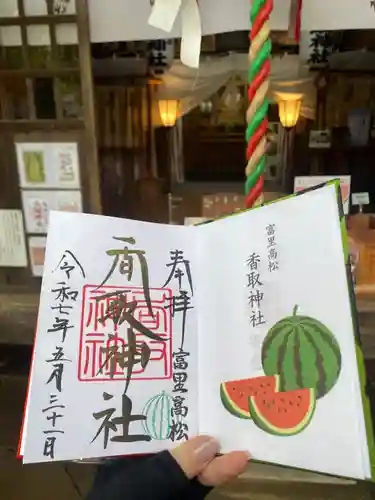 奉拝
富里高松
香取神社
香取神社
令和七年五月三十一日
富里高松
香取神社